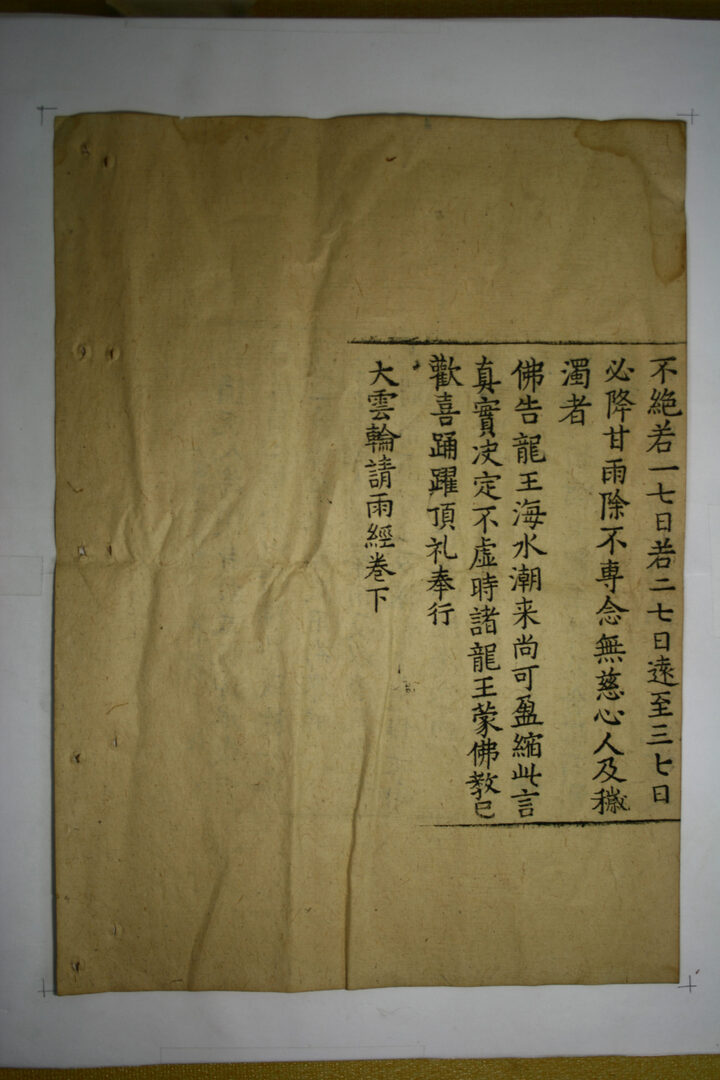 不絶若一七日若二七日遠至三七日
必降甘雨除不専念無慈心人及穢
濁者
佛告龍王海水潮来尚可盈縮此言
真實决定不虛時諸龍王蒙佛教已
歡喜踊躍頂礼奉行
大雲輪請雨經卷下